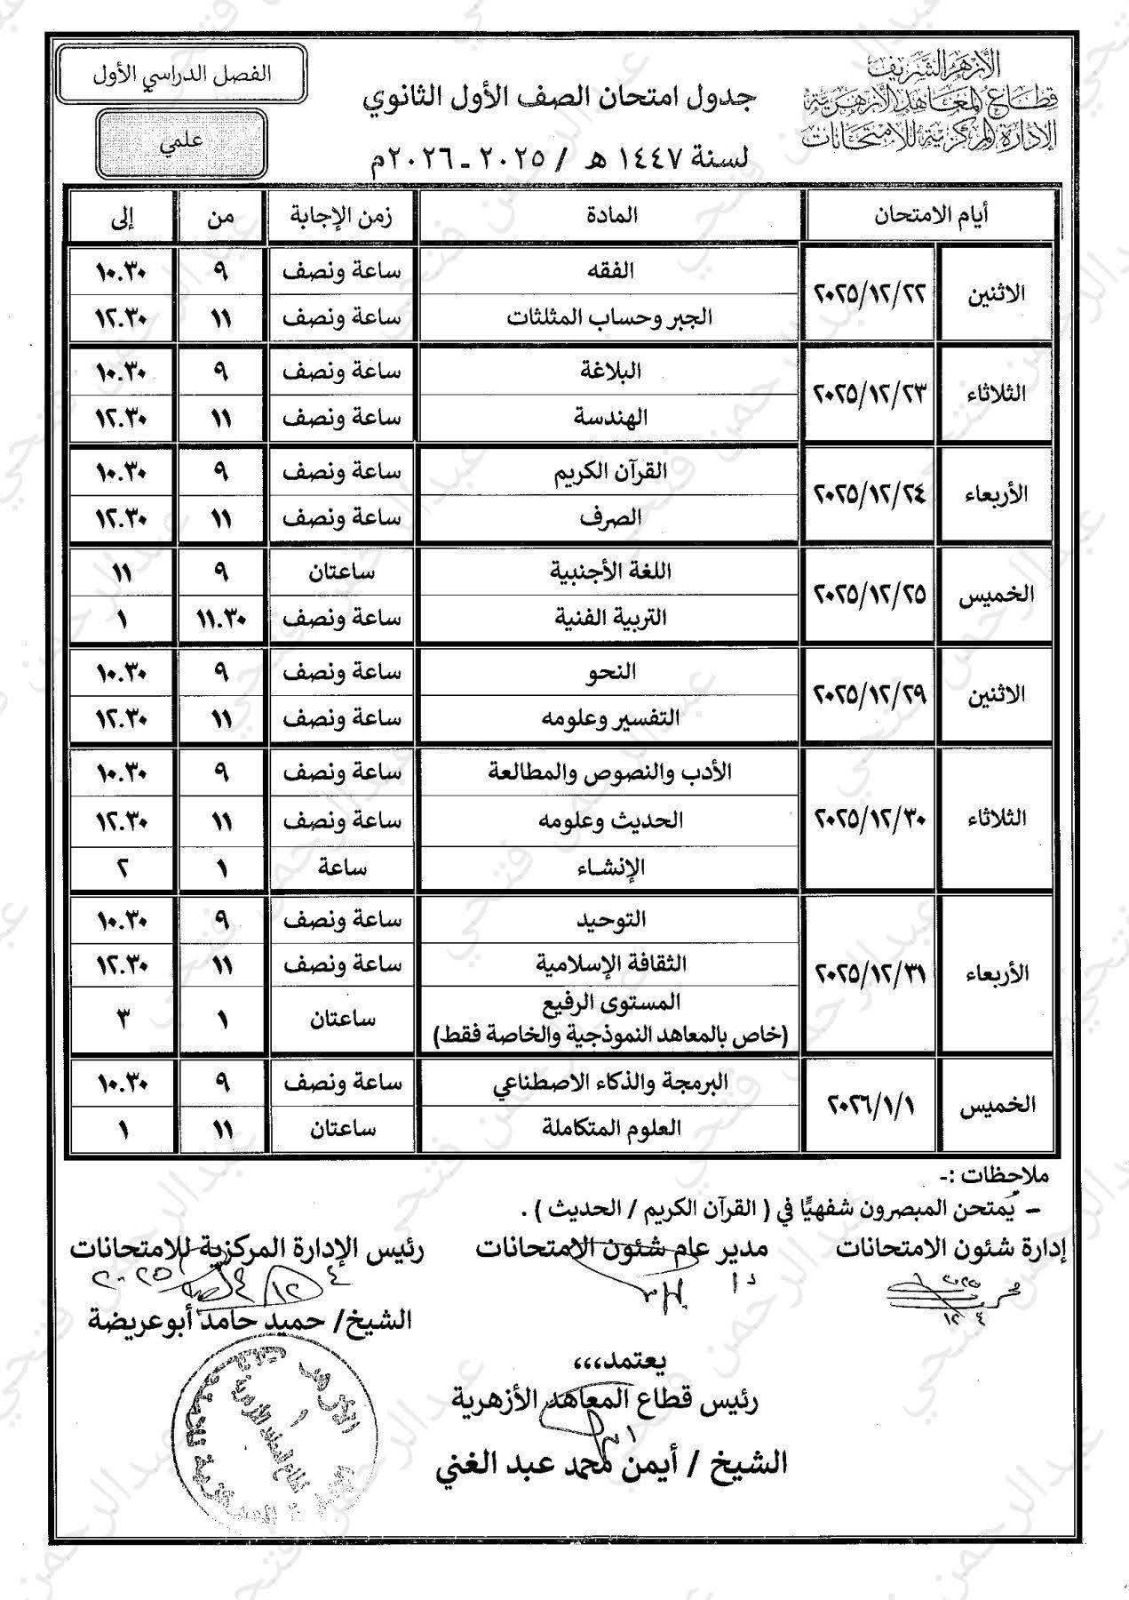 الأزهر الشريف
قطاع المعاهد الأزهرية
الإدارة المركزية للامتحانات
جدول امتحان الصف الأول الثانوي
لسنة ١٤٤٧ هـ / ٢٠٢٥ ـ ٢٠٢٦م
الفصل الدراسي الأول
علمي
أيام الامتحان المادة زمن الإجابة من إلى
الاثنين ٢٠٢٥/١٢/٢٢ الفقه ساعة ونصف ٩ ١٠.٣٠
الجبر وحساب المثلثات ساعة ونصف ١١ ١٢.٣٠
الثلاثاء ٢٠٢٥/١٢/٢٣ البلاغة ساعة ونصف ٩ ١٠.٣٠
الهندسة ساعة ونصف ١١ ١٢.٣٠
الأربعاء ٢٠٢٥/١٢/٢٤ القرآن الكريم ساعة ونصف ٩ ١٠.٣٠
الصرف ساعة ونصف ١١ ١٢.٣٠
الخميس ٢٠٢٥/١٢/٢٥ اللغة الأجنبية ساعتان ٩ ١١
التربية الفنية ساعة ونصف ١١.٣٠ ١
الاثنين ٢٠٢٥/١٢/٢٩ النحو ساعة ونصف ٩ ١٠.٣٠
التفسير وعلومه ساعة ونصف ١١ ١٢.٣٠
الثلاثاء ٢٠٢٥/١٢/٣٠ الأدب والنصوص والمطالعة ساعة ونصف ٩ ١٠.٣٠
الحديث وعلومه ساعة ونصف ١١ ١٢.٣٠
الإنشاء ساعة ١ ٢
الأربعاء ٢٠٢٥/١٢/٣١ التوحيد ساعة ونصف ٩ ١٠.٣٠
الثقافة الإسلامية ساعة ونصف ١١ ١٢.٣٠
المستوى الرفيع ساعتان ١ ٣
(خاص بالمعاهد النموذجية والخاصة فقط)
الخميس ٢٠٢٦/١/١ البرمجة والذكاء الاصطناعي ساعة ونصف ٩ ١٠.٣٠
العلوم المتكاملة ساعتان ١١ ١
ملاحظات :-
– يُمتحن المبصرون شفهيًّا في ( القرآن الكريم / الحديث ) .
إدارة شئون الامتحانات مدير عام شئون الامتحانات رئيس الإدارة المركزية للامتحانات
الشيخ/ حميد حامد أبوعريضة
يعتمد،،،
رئيس قطاع المعاهد الأزهرية
الشيخ / أيمن محمد عبد الغني
عبدالرحمن فتحي